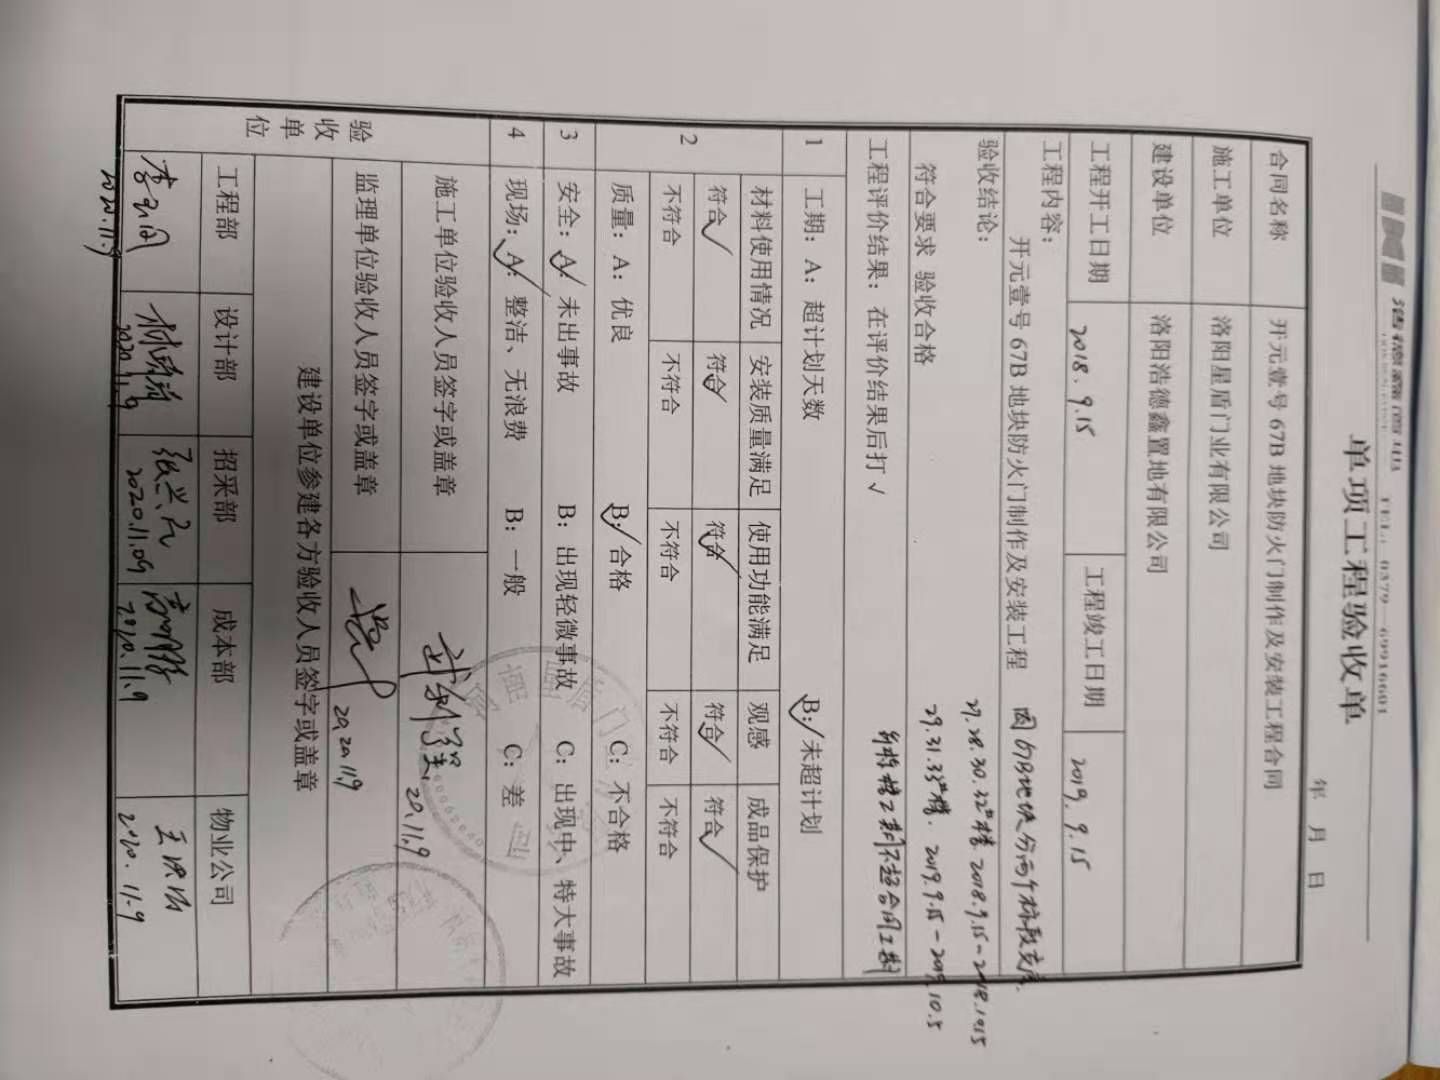 TEL: 0379—69916601
单项工程验收单
年 月 日
合同名称 开元壹号 67B 地块防火门制作及安装工程合同
施工单位 洛阳星盾门业有限公司
建设单位 洛阳浩德鑫置地有限公司
工程开工日期 2018.9.15 工程竣工日期 2019.9.15
工程内容:
开元壹号 67B 地块防火门制作及安装工程 因67B地块分两个标段交房.
验收结论: 27.28.30.32#楼 2018.9.15-2018.10.15
符合要求 验收合格 29.31.33#楼. 2019.9.15-2019.10.5
工程评价结果: 在评价结果后打√
1 工期: A: 超计划天数 B: √ 未超计划
2 材料使用情况 安装质量满足 使用功能满足 观感 成品保护
符合√ 符合√ 符合√ 符合√ 符合√
不符合 不符合 不符合 不符合 不符合
质量: A: 优良 B: √ 合格 C: 不合格
3 安全: A: √ 未出事故 B: 出现轻微事故 C: 出现中、特大事故
4 现场: A: √ 整洁、无浪费 B: 一般 C: 差
验收单位
施工单位验收人员签字或盖章 20.11.9
监理单位验收人员签字或盖章 2020.11.9
建设单位参建各方验收人员签字或盖章
工程部 设计部 招采部 成本部 物业公司
2020.11.9 2020.11.9 2020.11.09 2020.11.9 2020.11.9